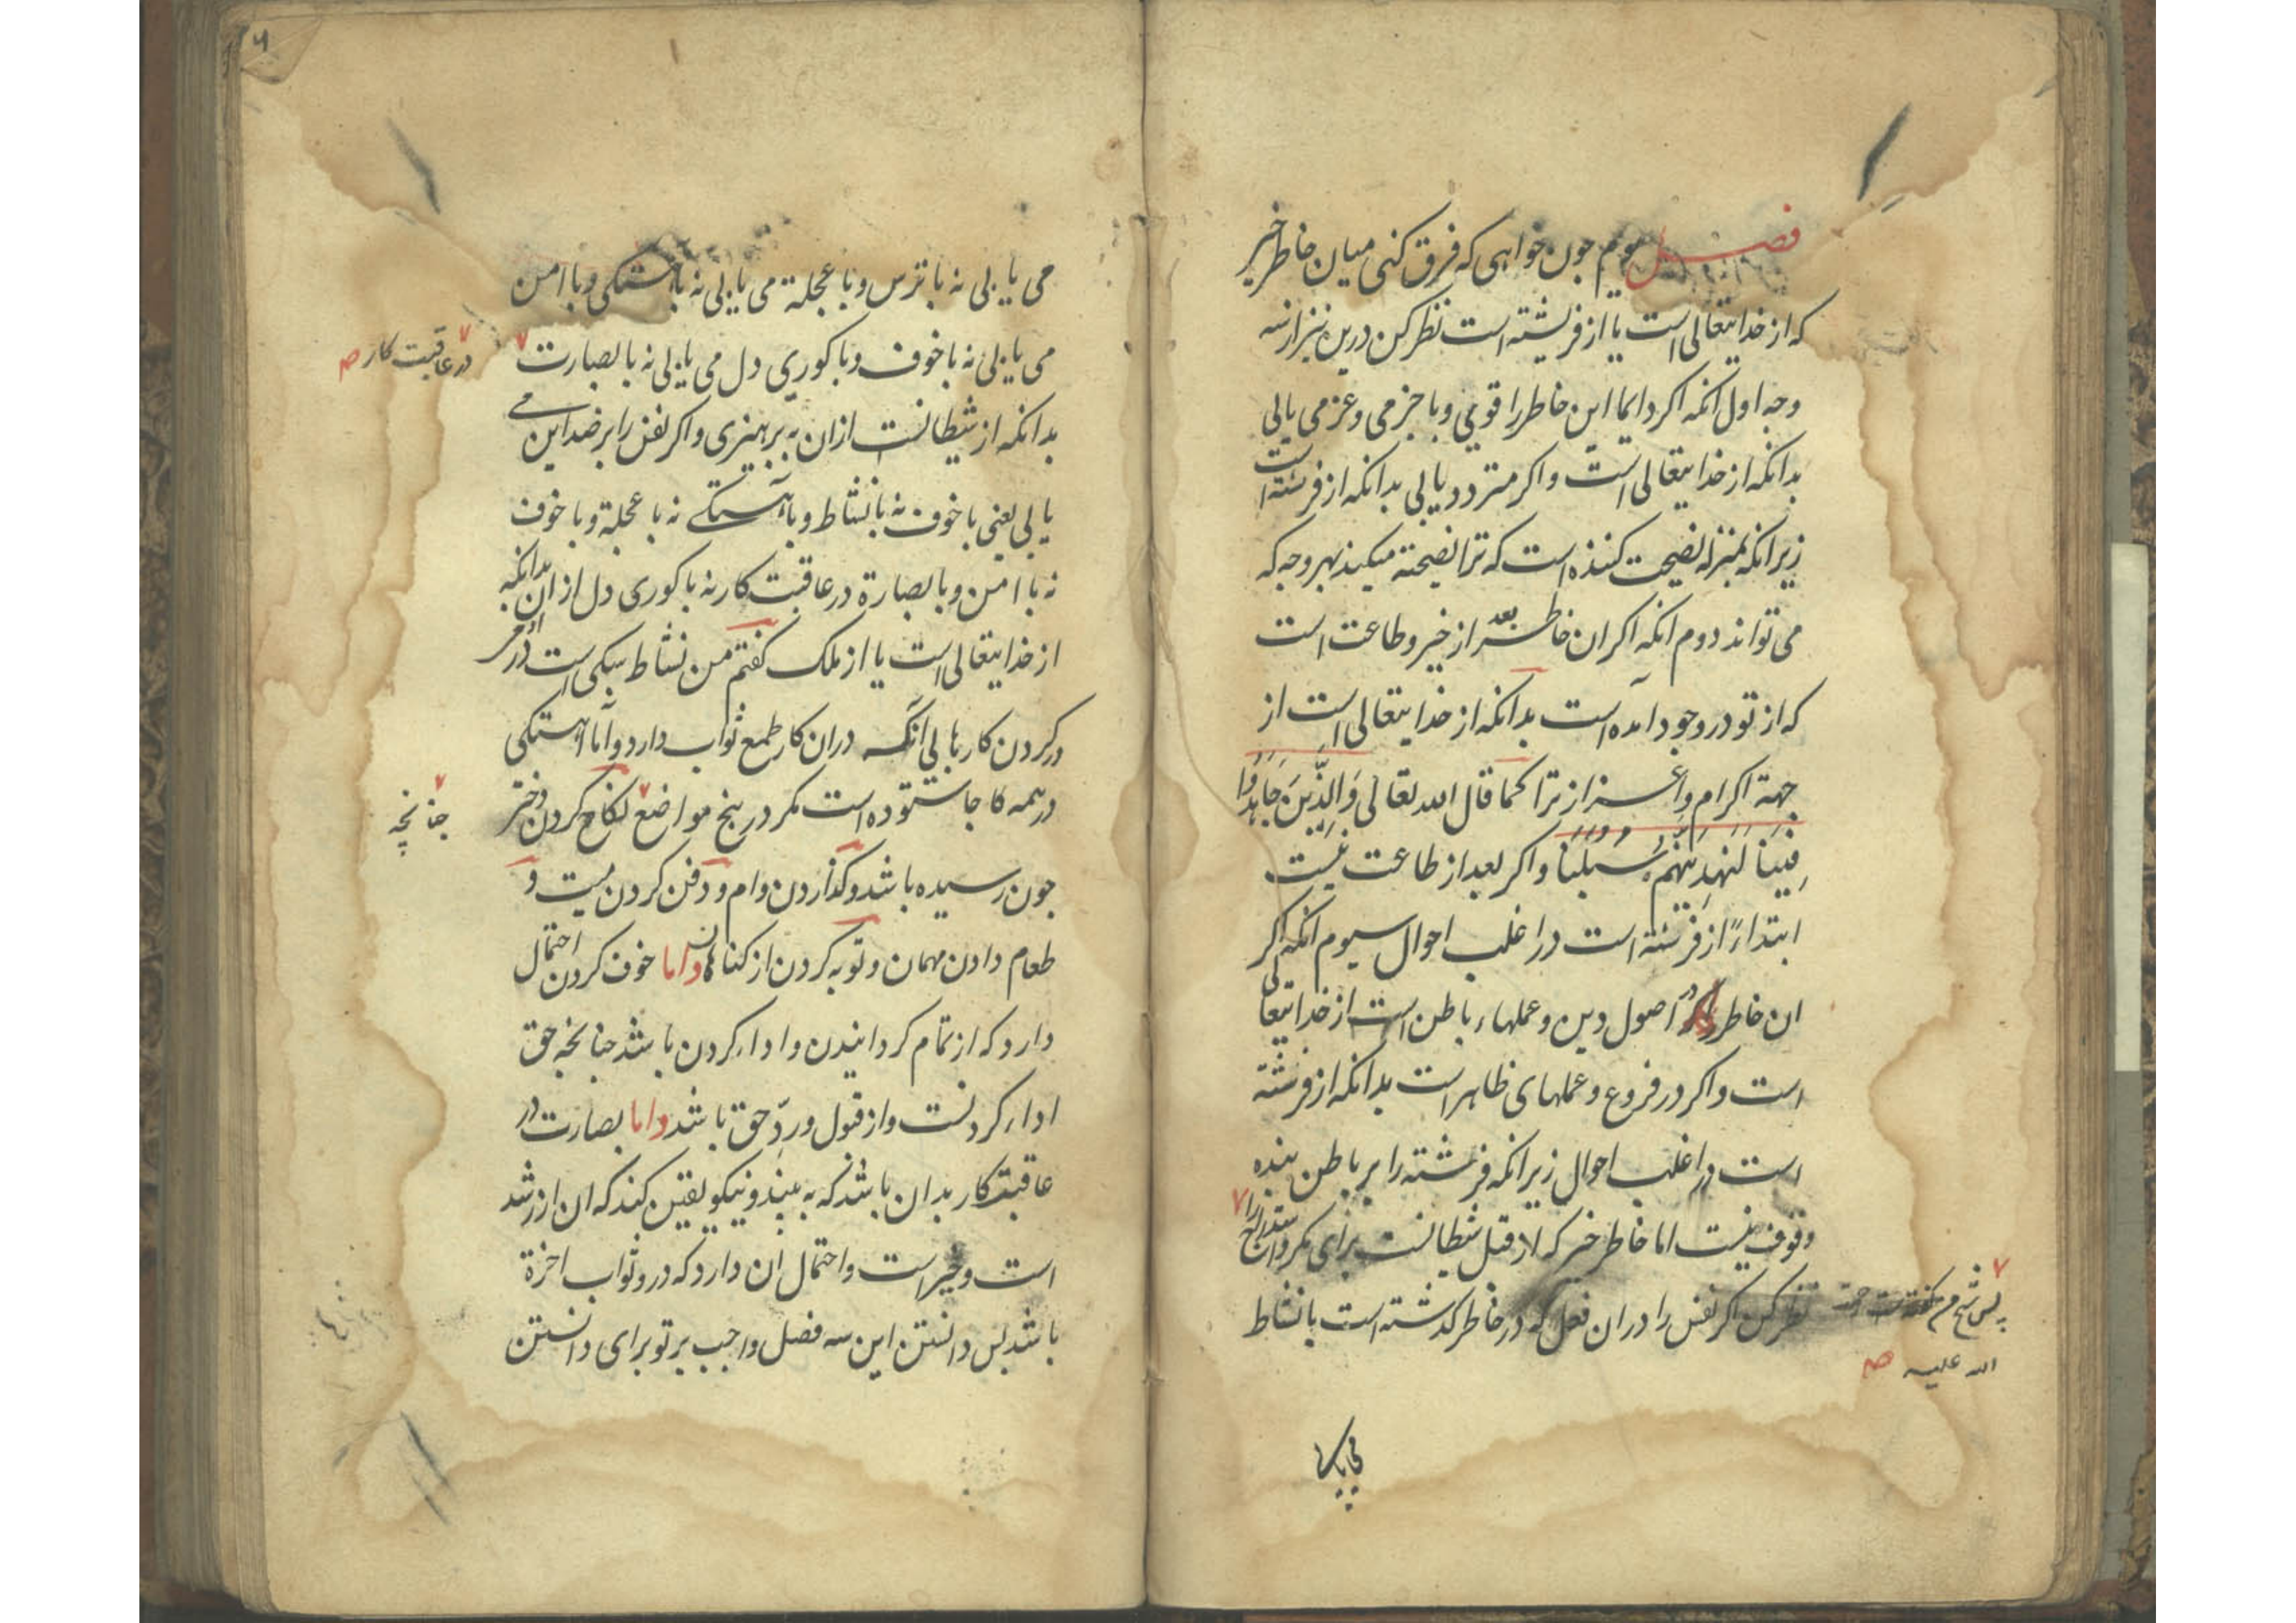 فصل سوم جون خواهی که فرق کنی میان خاطر خیر
که از خدایتعالی است یا از فریشته است نظر کن درین نیز از سه
وجه اول آنکه اکر دایما این خاطر را قوی و با جزمی و عزمی یابی
بدانکه از خدایتعالی است واکر متردد یابی بدانکه از فرشته است
زیرانکه بمنزله نصیحت کننده است که ترا نصیحته میکند بهر وجه که
می تواند دوم انکه اکر ان خاطر بعد از خیر و طاعت است
که از تو در وجود آمده است بدانکه از خدایتعالی است از
جهة اکرام و اعزاز ترا کما قال الله تعالی وَالَّذِینَ جَاهَدُوا
فِینَا لَنَهْدِیَنَّهُمْ سُبُلَنَا واکر بعد از طاعت نیست
ابتداءً از فرشته است در اغلب احوال سیوم انکه اکر
ان خاطر در اصول دین و عملهاء باطن است از خدایتعالی
است واکر در فروع و عملهای ظاهر است بدانکه از فرشته
است در اغلب احوال زیرانکه فرشته را بر باطن بنده
وقوف نیست اما خاطر خیر که از قبل شیطانست برای مکر و استدراج را
نظر کن اکر نفس را در ان فعل که در خاطر کذشته است با نشاط
پس شیخ م کفته است رحمة
الله علیه صح
می یابی
می یابی نه با ترس و با عجلة می یابی نه با آهستکی و با امن
می یابی نه با خوف و با کوری دل می یابی نه با بصارت
در عاقبت کار صح
بدانکه از شیطانست ازان به پرهیزی واکر نفس را بر ضد این می
یابی یعنی با خوف نه با نشاط و با آهستکی نه با عجلة و با خوف
نه با امن و با بصارة در عاقبت کار نه با کوری دل از ان بدانکه
از خدایتعالی است یا از ملک کفتم من نشاط سبکی است
در کردن کارها بی آنکه دران کار طمع ثواب دارد واما اهستکی
در همه کا جا ستوده است مکر در پنج مواضع نکاح کردن دختر
چنانچه
جون رسیده باشد و کذاردن وام و دفن کردن میت و
طعام دادن مهمان و توبه کردن از کناهان واما خوف کردن احتمال
دارد که از تمام کردانیدن و اداء کردن باشد چنانچه حق
اداء کردنست واز قبول و ردّ حق باشد واما بصارت در
عاقبت کار بدان باشد که به بیند و نیکو یقین کند که ان از رشد
است و خیر است و احتمال ان دارد که در و ثواب اخرة
باشد پس دانستن این سه فصل واجب بر تو برای دانستن